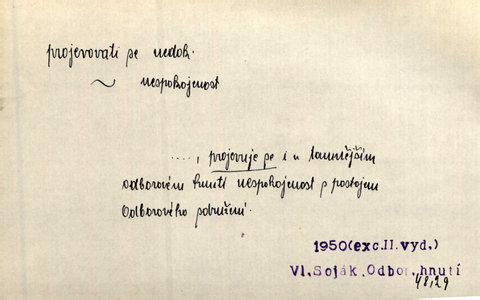 projevovati se nedok.
~ nespokojenost
...., projevuje se i u tamnějším
odborovém hnutí nespokojenost s postojem
Odborového sdružení.
1950(exc.II.vyd.)
Vl.Soják,Odbor.hnutí
48,29